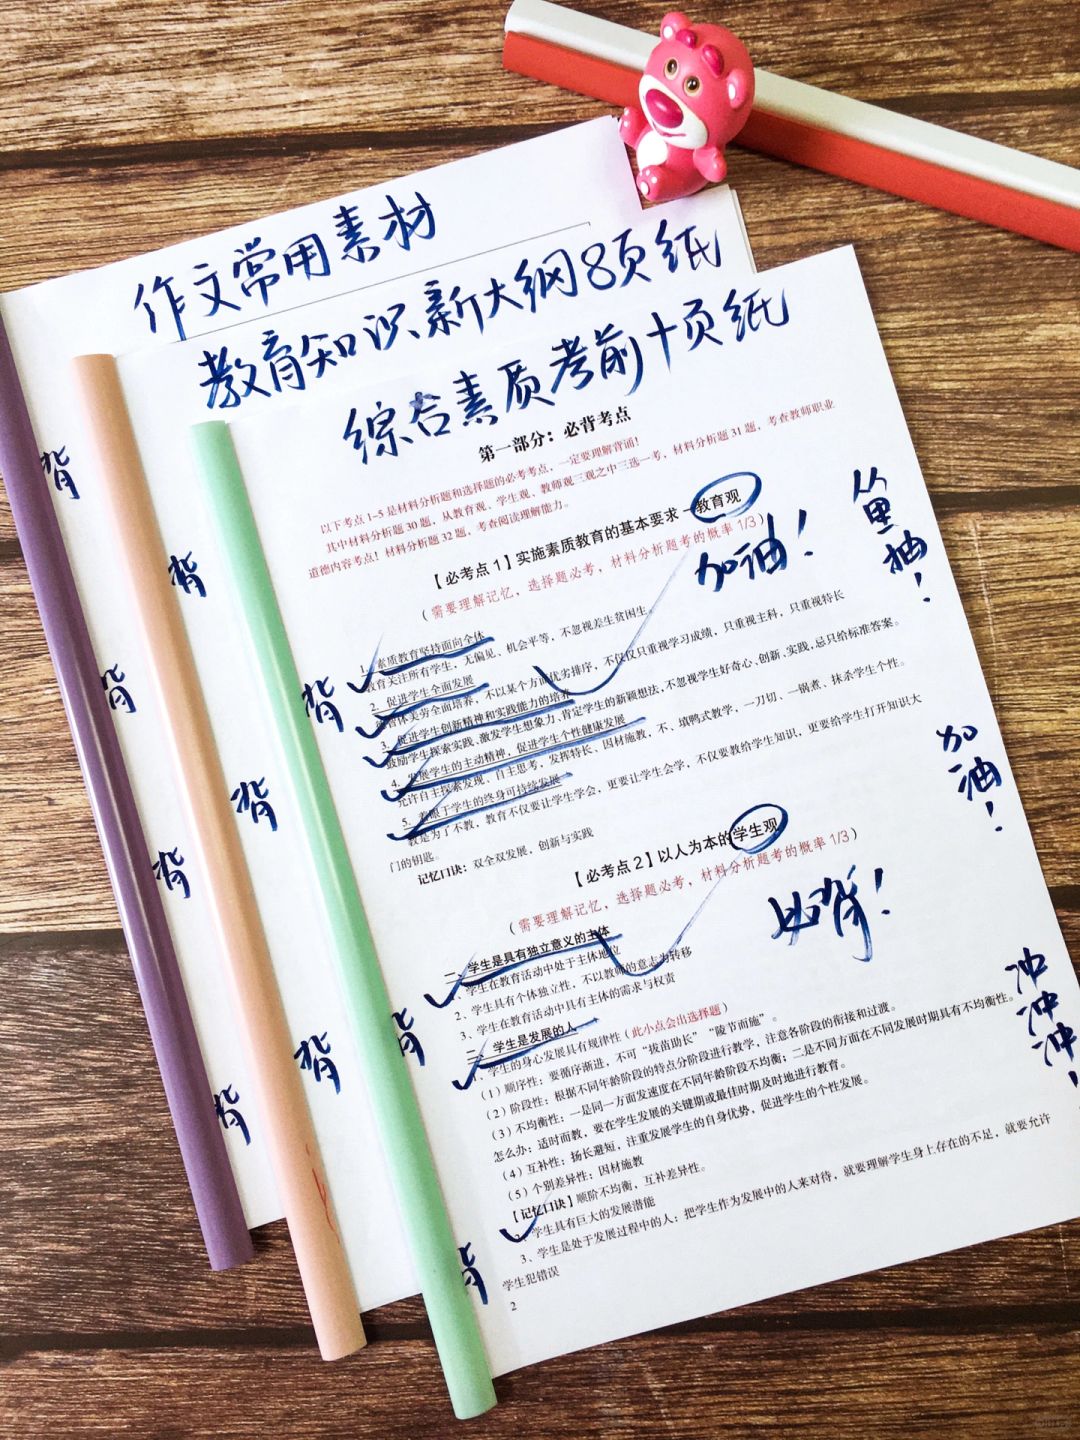 作文常用素材
教育知识新大纲8页纸
综合素质考前十页纸
第一部分：必背考点
以下考点1-5是材料分析题和选择题的必考考点，一定要理解背诵！
其中材料分析题30题，从教育观、学生观、教师观三观之中三选一考，材料分析题31题，考查教师职业
道德内容考点！材料分析题32题，考查阅读理解能力。
【必考点1】实施素质教育的基本要求—教育观
（需要理解记忆，选择题必考，材料分析题考的概率1/3）
加油！
1、素质教育坚持面向全体
教育关注所有学生，无偏见、机会平等，不忽视差生贫困生。
2、促进学生全面发展
德智体美劳全面培养，不以某个方面优劣排序，不仅仅只重视学习成绩，只重视主科，只重视特长
3、促进学生创新精神和实践能力的培养
鼓励学生探索实践、激发学生想象力、肯定学生的新颖想法，不忽视学生好奇心、创新、实践，忌只给标准答案。
4、发展学生的主动精神，促进学生个性健康发展
允许自主探索发现、自主思考，发挥特长、因材施教，不、填鸭式教学，一刀切、一锅煮、抹杀学生个性。
5、着眼于学生的终身可持续发展
教是为了不教，教育不仅要让学生学会，更要让学生会学，不仅要教给学生知识，更要给学生打开知识大
门的钥匙。
记忆口诀：双全双发展，创新与实践
【必考点2】以人为本的学生观
（需要理解记忆，选择题必考，材料分析题考的概率1/3）
必背！
一、学生是具有独立意义的主体
1、学生在教育活动中处于主体地位
2、学生具有个体独立性，不以教师的意志为转移
3、学生在教育活动中具有主体的需求与权责
二、学生是发展的人
1、学生的身心发展具有规律性（此小点会出选择题）
（1）顺序性：要循序渐进，不可“拔苗助长”“陵节而施”。
（2）阶段性：根据不同年龄阶段的特点分阶段进行教学，注意各阶段的衔接和过渡。
（3）不均衡性：一是同一方面发速度在不同年龄阶段不均衡；二是不同方面在不同发展时期具有不均衡性。
怎么办：适时而教，要在学生发展的关键期或最佳时期及时地进行教育。
（4）互补性：扬长避短，注重发展学生的自身优势，促进学生的个性发展。
（5）个别差异性：因材施教
【记忆口诀】顺阶不均衡，互补差异性。
2、学生具有巨大的发展潜能
3、学生是处于发展过程中的人：把学生作为发展中的人来对待，就要理解学生身上存在的不足，就要允许
学生犯错误
2
加油！
冲冲冲！
背
背
背
背
背
背
背
背
背
背